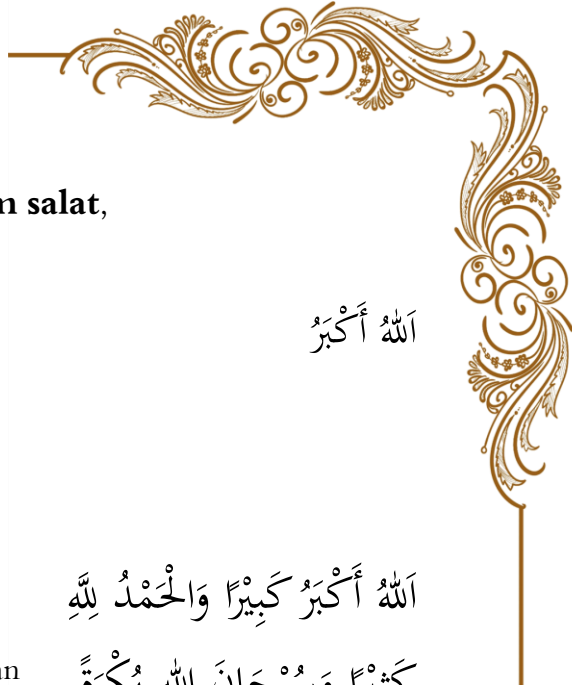 n salat,
اَللهُ أَكْبَرُ
اَللهُ أَكْبَرُ كَبِيْرًا وَالْحَمْدُ لِلَّهِ
an